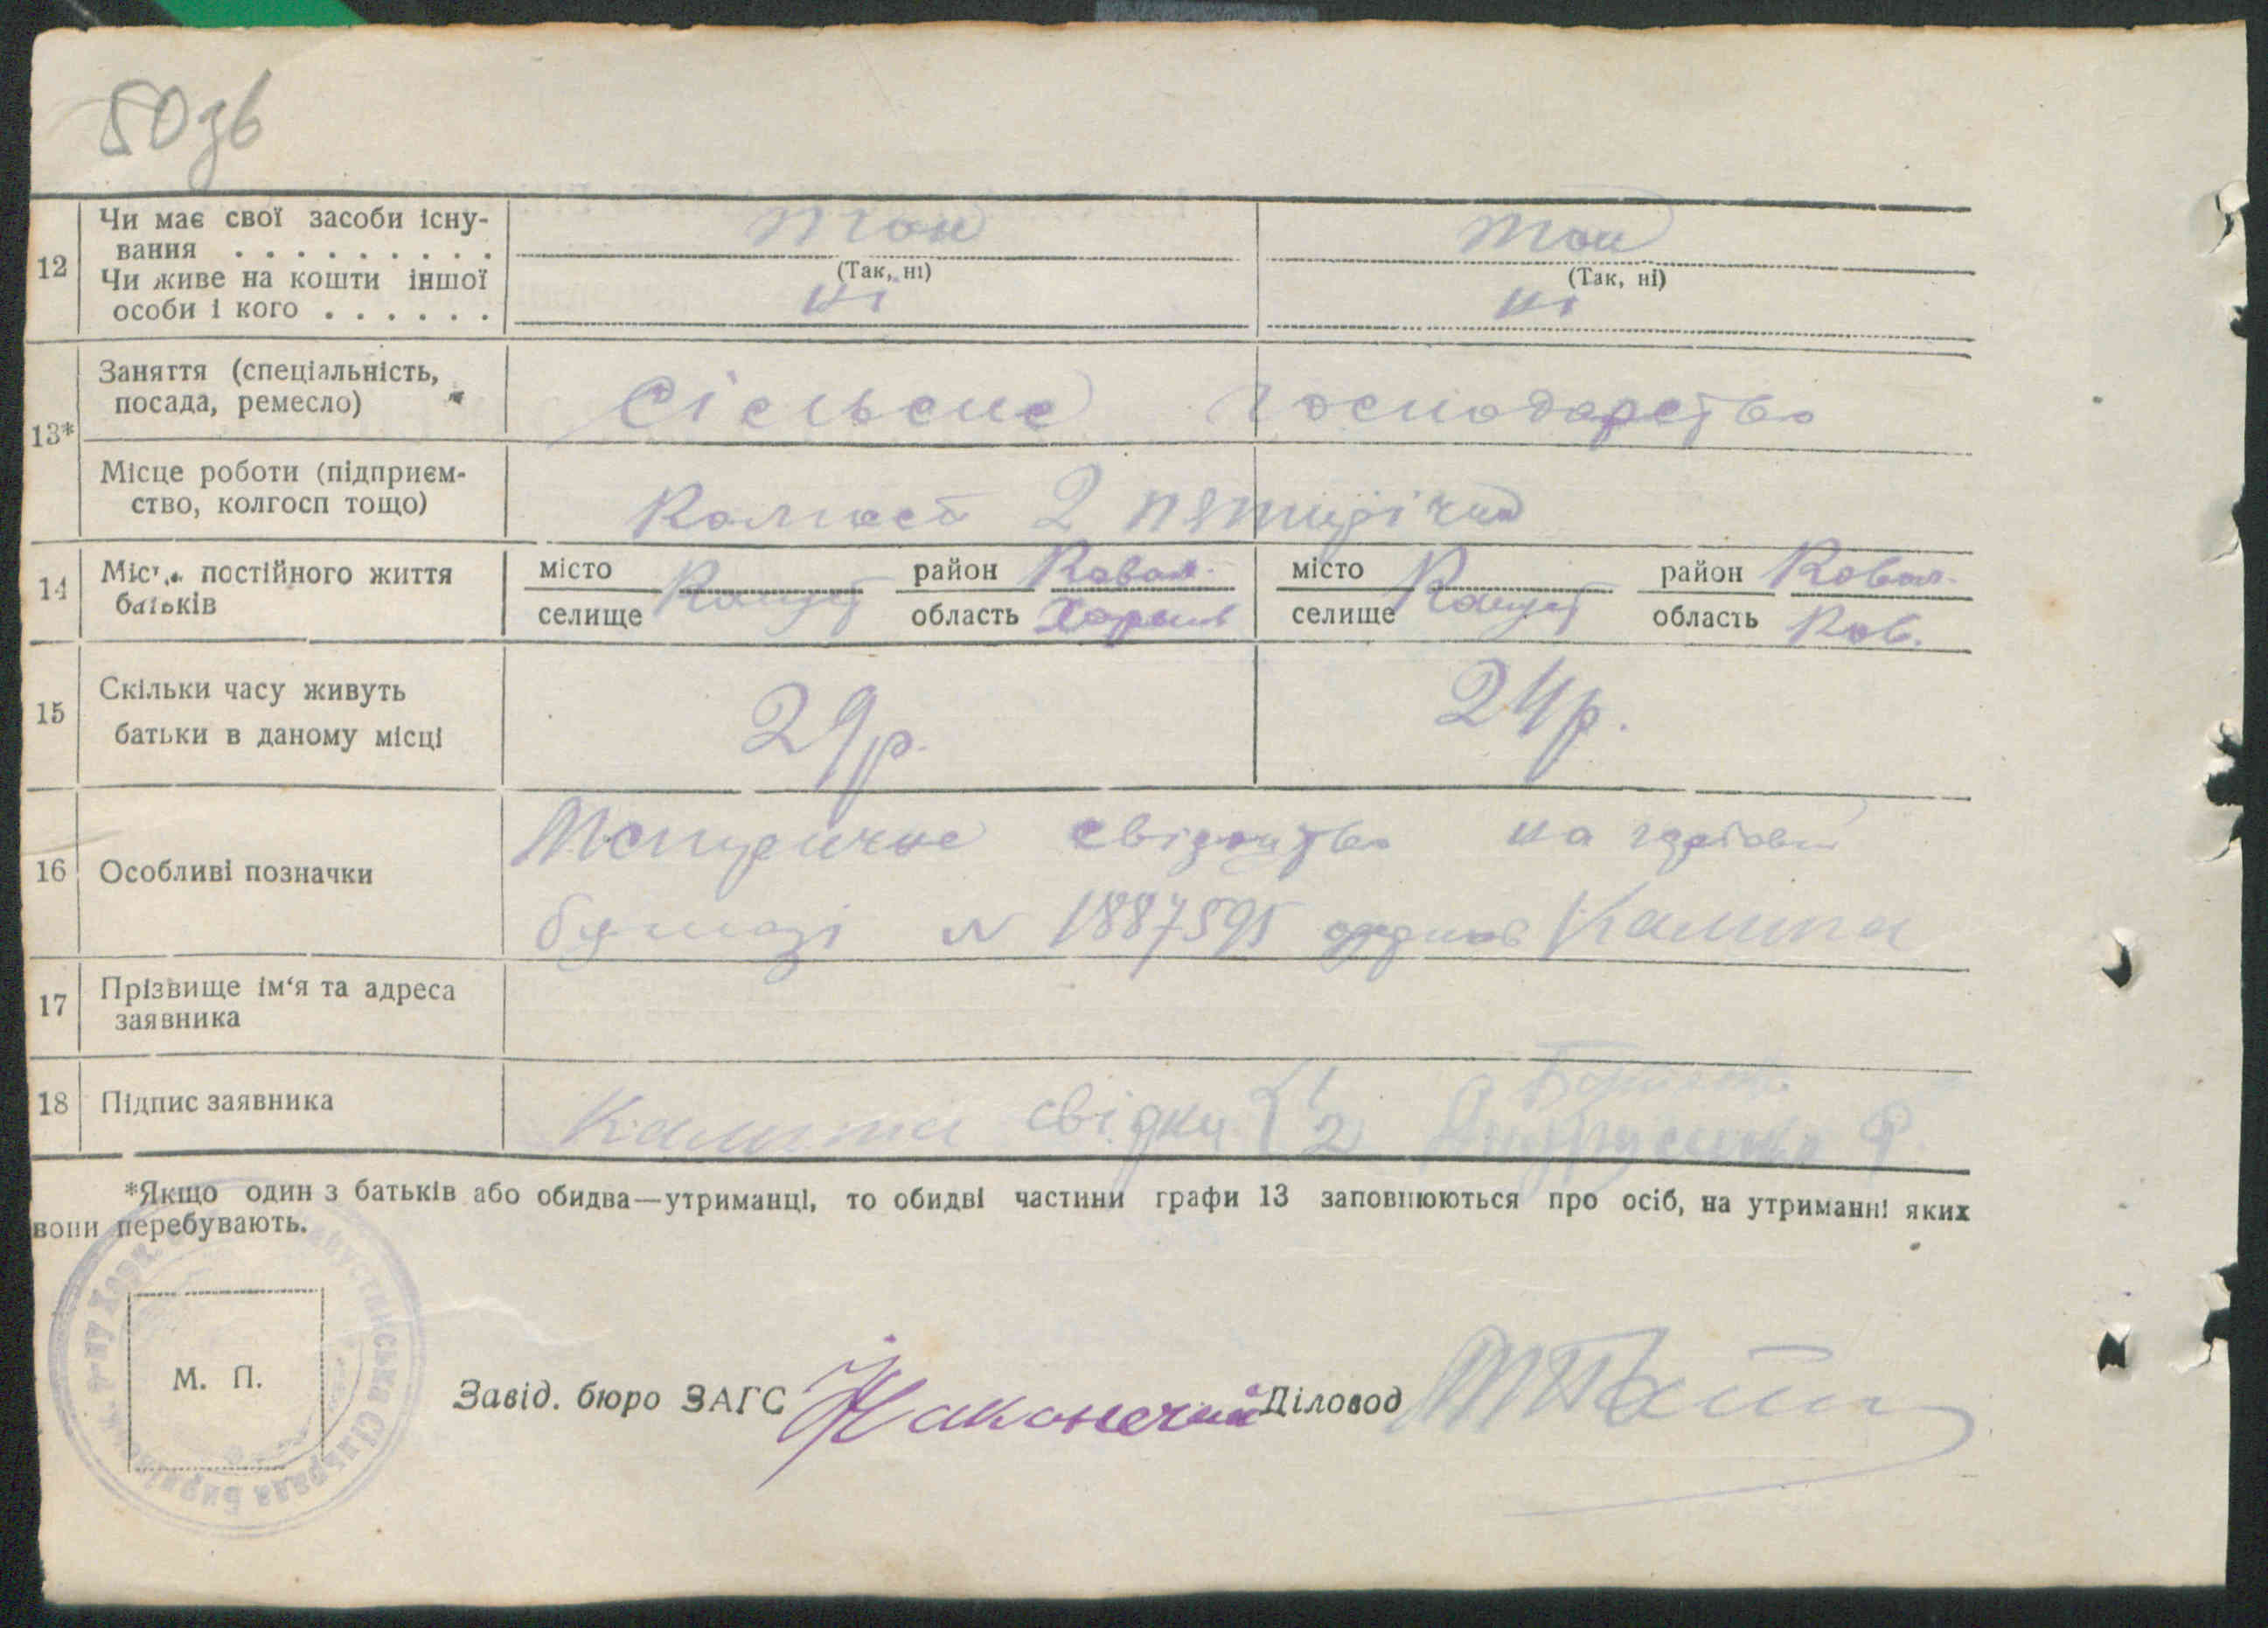 50зв
12 Чи має свої засоби існу-
вання . . . . . . . . . . так так
(Так, ні) (Так, ні)
Чи живе на кошти іншої
особи і кого . . . . . . ні ні
13* Заняття (спеціальність,
посада, ремесло) Сільське господарство
Місце роботи (підприєм-
ство, колгосп тощо) Колгосп 2 пятирічка
14 Місце постійного життя
батьків
місто район Ковал. місто район Ковал.
селище область Харьків селище область
15 Скільки часу живуть
батьки в даному місці 29р. 24р.
16 Особливі позначки свідоцтво на
бумазі № 1887595 Калита
17 Прізвище ім‘я та адреса
заявника
18 Підпис заявника Калита свідки 1
2 Андрусенко Ф.
*Якщо один з батьків або обидва—утриманці, то обидві частини графи 13 заповнюються про осіб, на утриманні яких
вони перебувають.
М. П.
Сільрада
Завід. бюро ЗАГС Наконечний Діловод